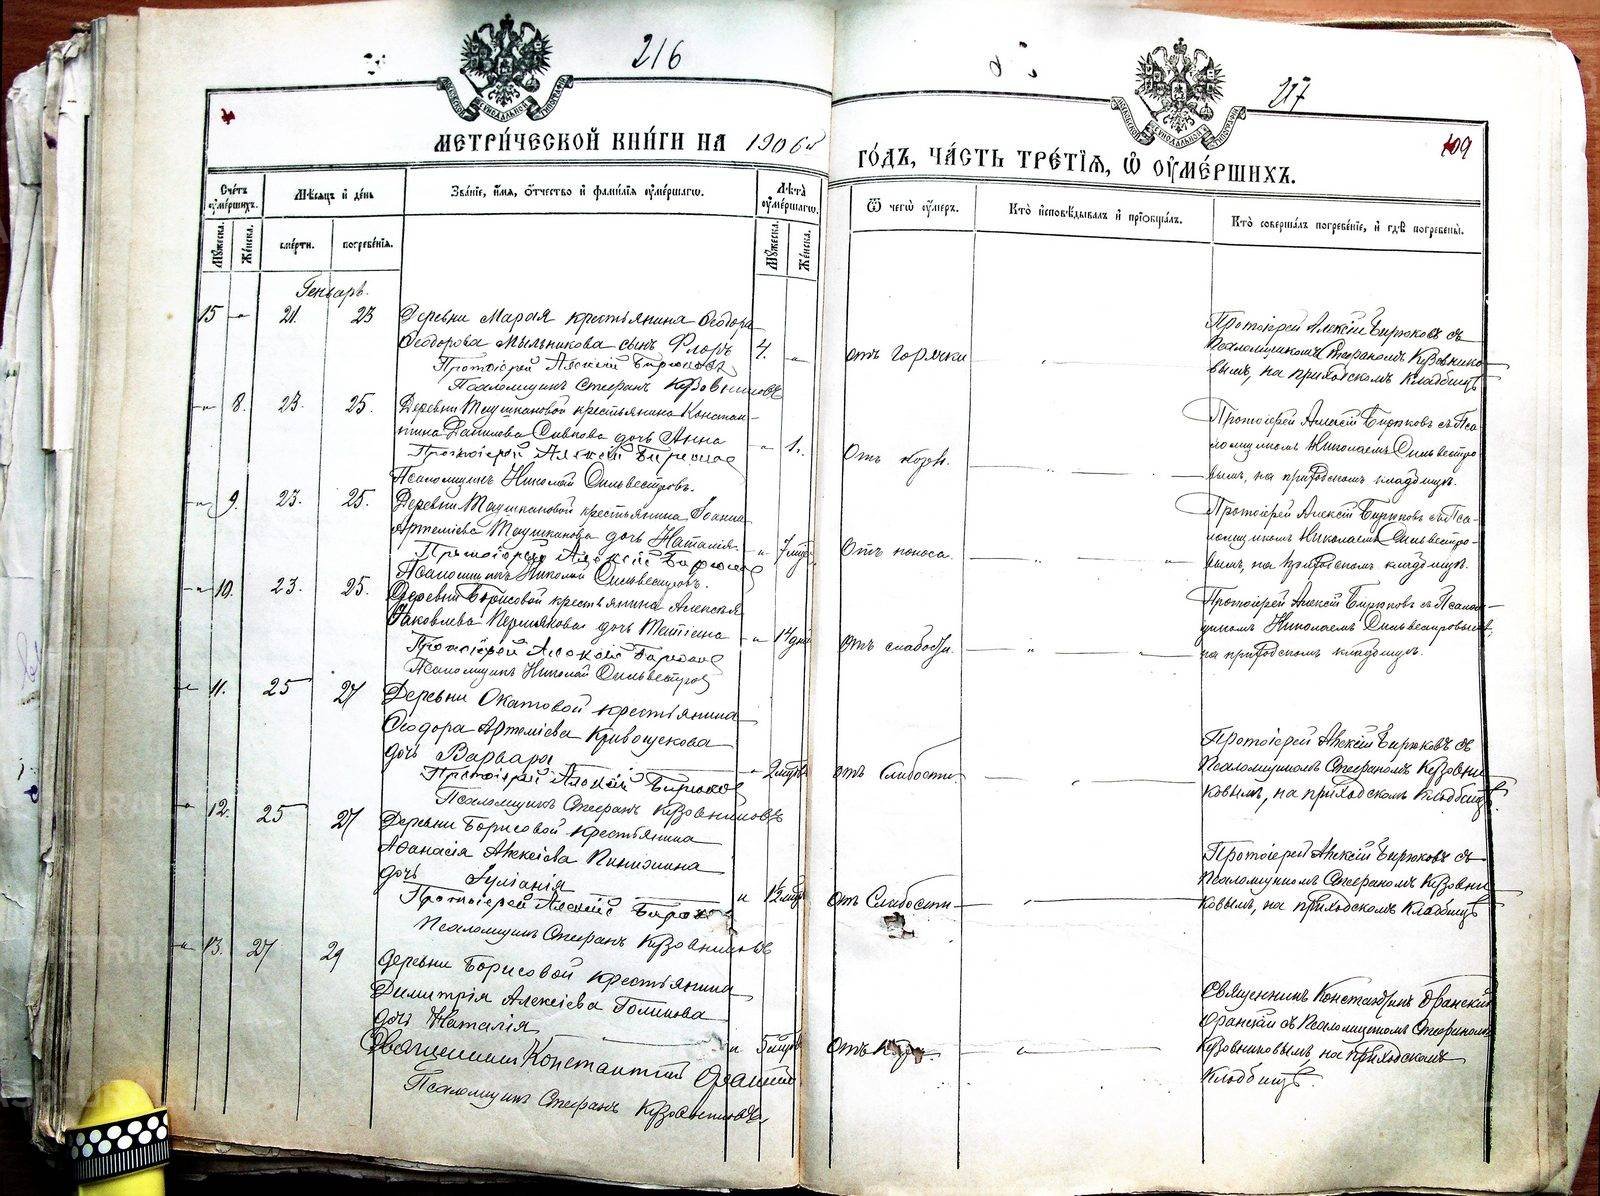 216
МЕТРИЧЕСКОЙ КНИГИ НА 1906й
Счетъ умершихъ.
Мужеска.
Женска.
Мѣсяцъ и день
смерти.
погребенія.
Званіе, имя, отчество и фамилія умершаго.
Лѣта умершаго.
Мужеска.
Женска.
Генварь.
15 21. 23
Деревни Марая крестьянина Ѳеодора
Ѳеодорова Мыльникова сынъ Флоръ 4.
Протоіерей Алексій Бирюковъ
Псаломщикъ Стефанъ Кузовниковъ
8. 23. 25.
Деревни Таушкановой крестьянина Констан-
тина Данилова Сивкова дочь Анна 1.
Протоіерей Алексій Бирюковъ
Псаломщикъ Николай Сильвестровъ.
9. 23. 25.
Деревни Таушкановой крестьянина Іоанна
Артеміева Таушканова дочь Наталія 7 мѣс.
Протоіерей Алексій Бирюковъ
Псаломщикъ Николай Сильвестровъ.
10. 23. 25.
Деревни Борисовой крестьянина Алексѣя
Іаковлева Пермякова дочь Татіана 14 дней
Протоіерей Алексій Бирюковъ
Псаломщикъ Николай Сильвестровъ
11. 25 27
Деревни Окатовой крестьянина
Ѳеодора Артеміева Кривощекова
дочь Варвара 2 мѣс.
Протоіерей Алексій Бирюковъ
Псаломщикъ Стефанъ Кузовниковъ
12. 25 27
Деревни Борисовой крестьянина
Аѳанасія Алексіева Пинигина
дочь Іуліанія 1½ мѣс.
Протоіерей Алексій Бирюковъ
Псаломщикъ Стефанъ Кузовниковъ
13. 27 29
Деревни Борисовой крестьянина
Димитрія Алексіева Голикова
дочь Наталія 5 мѣс.
Священникъ Константинъ
Псаломщикъ Стефанъ Кузовниковъ
217
109
ГОДЪ, ЧАСТЬ ТРЕТІЯ, Ѡ УМЕРШИХЪ.
Ѿ чегѡ умеръ.
Кто исповѣдывалъ и пріобщалъ.
Кто совершалъ погребеніе, и гдѣ погребены.
отъ горячки
Протоіерей Алексій Бирюковъ съ
Псаломщикомъ Стефаномъ Кузовнико-
вымъ, на приходскомъ кладбищѣ
Отъ кори.
Протоіерей Алексій Бирюковъ съ Пса-
ломщикомъ Николаемъ Сильвестро-
вымъ, на приходскомъ кладбищѣ.
Отъ поноса.
Протоіерей Алексій Бирюковъ съ Пса-
ломщикомъ Николаемъ Сильвестро-
вымъ, на приходскомъ кладбищѣ.
отъ слабости.
Протоіерей Алексій Бирюковъ съ Псалом-
щикомъ Николаемъ Сильвестровымъ,
на приходскомъ кладбищѣ.
отъ слабости.
Протоіерей Алексій Бирюковъ съ
Псаломщикомъ Стефаномъ Кузовни-
ковымъ, на приходскомъ кладбищѣ.
отъ Слабости
Протоіерей Алексій Бирюковъ съ
Псаломщикомъ Стефаномъ Кузовни-
ковымъ, на приходскомъ кладбищѣ
Отъ
Священникъ Константинъ
съ Псаломщикомъ Стефаномъ
Кузовниковымъ, на приходскомъ
Кладбищѣ.